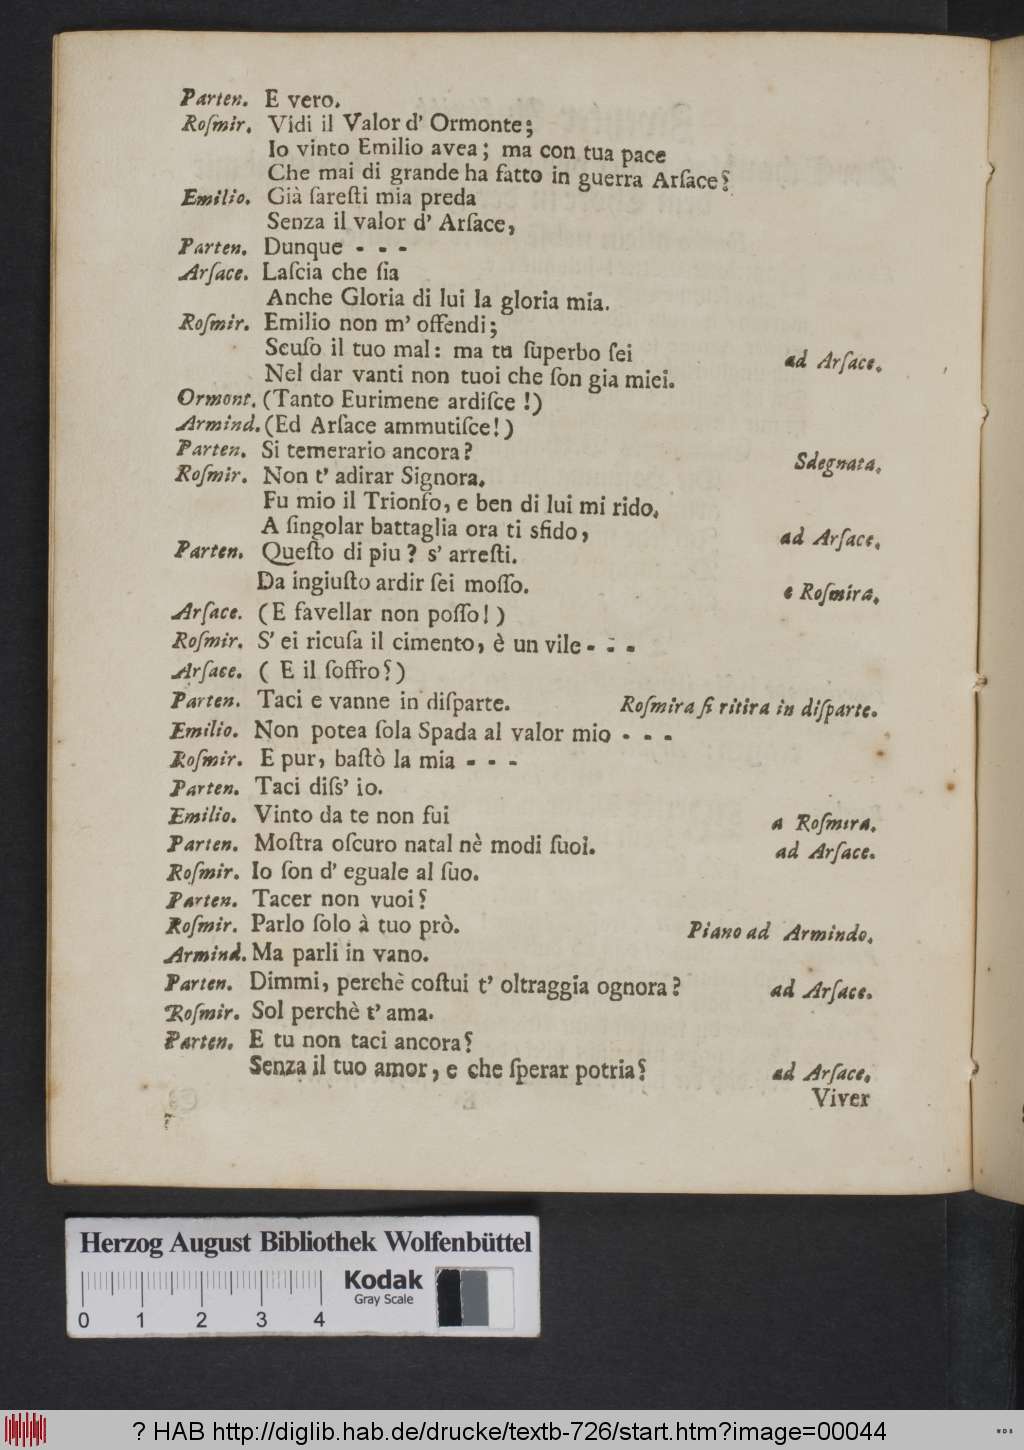 Parten. E vero.
Roſmir. Vidi il Valor d' Ormonte;
Io vinto Emilio avea; ma con tua pace
Che mai di grande ha fatto in guerra Arſace?
Emilio. Già ſareſti mia preda
Senza il valor d' Arſace,
Parten. Dunque - - -
Arſace. Laſcia che ſia
Anche Gloria di lui la gloria mia.
Roſmir. Emilio non m' offendi;
Scuſo il tuo mal: ma tu ſuperbo ſei ad Arſace.
Nel dar vanti non tuoi che ſon gia miei.
Ormont. (Tanto Eurimene ardiſce!)
Armind. (Ed Arſace ammutiſce!)
Parten. Si temerario ancora? Sdegnata.
Roſmir. Non t' adirar Signora.
Fu mio il Trionfo, e ben di lui mi rido.
A ſingolar battaglia ora ti sfido, ad Arſace.
Parten. Queſto di piu? s' arreſti.
Da ingiuſto ardir ſei moſſo. e Roſmira.
Arſace. (E favellar non poſſo!)
Roſmir. S' ei ricuſa il cimento, è un vile - - -
Arſace. ( E il ſoffro?)
Parten. Taci e vanne in diſparte. Roſmira ſi ritira in diſparte.
Emilio. Non potea ſola Spada al valor mio - - -
Roſmir. E pur, baſtò la mia - - -
Parten. Taci diſs' io.
Emilio. Vinto da te non fui a Roſmira.
Parten. Moſtra oſcuro natal nè modi ſuoi. ad Arſace.
Roſmir. Io ſon d' eguale al ſuo.
Parten. Tacer non vuoi?
Roſmir. Parlo ſolo à tuo prò. Piano ad Armindo.
Armind. Ma parli in vano.
Parten. Dimmi, perchè coſtui t' oltraggia ognora? ad Arſace.
Roſmir. Sol perchè t' ama.
Parten. E tu non taci ancora?
Senza il tuo amor, e che ſperar potria? ad Arſace.
Viver
Herzog August Bibliothek Wolfenbüttel
Kodak
Gray Scale
0 1 2 3 4
? HAB http://diglib.hab.de/drucke/textb-726/start.htm?image=00044